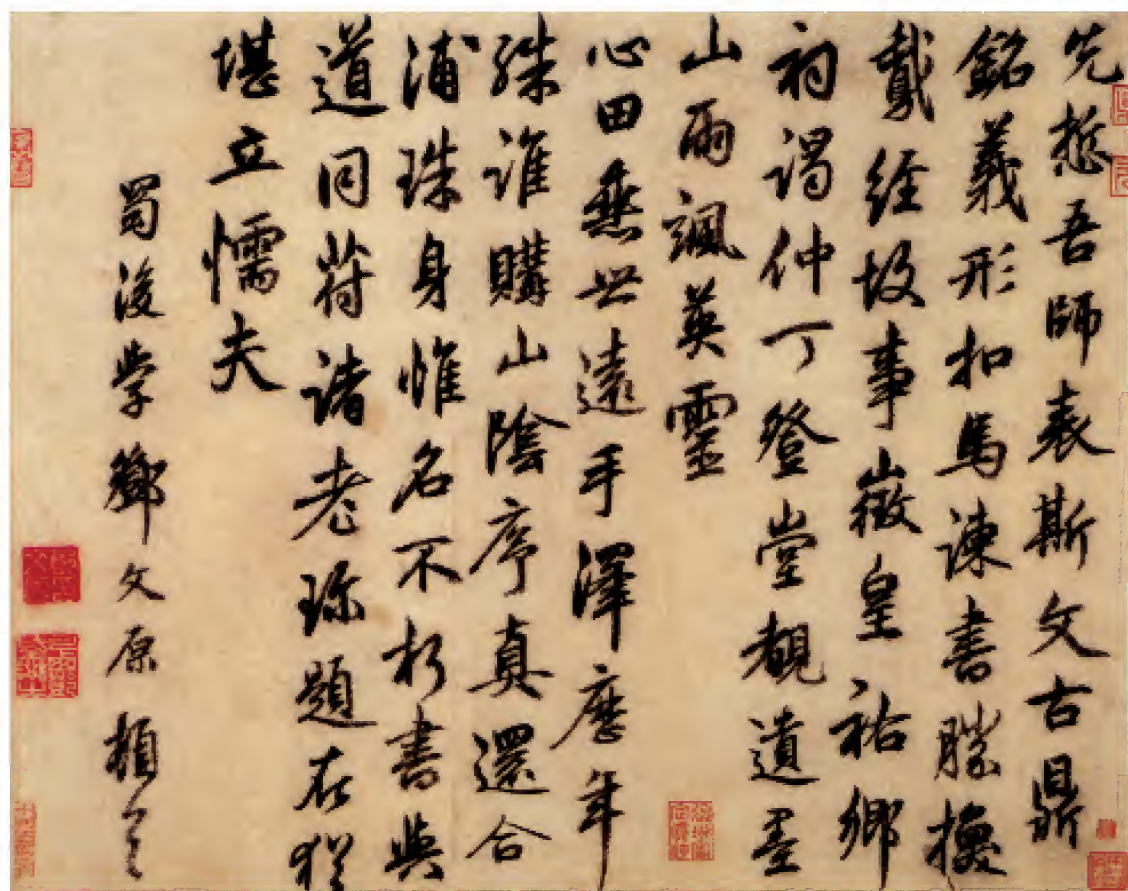 先悊吾師表斯文古鼎
銘義形扣馬諫書勝換
鵞經故事徵皇祐鄉
祠謁仲丁登堂覩遺墨
山雨颯英靈
心田垂世遠手澤歷年
殊誰購山陰序真還合
浦珠身惟名不朽書與
道同符諸老珍題在猶
堪立懦夫
蜀後學鄧文原頓首